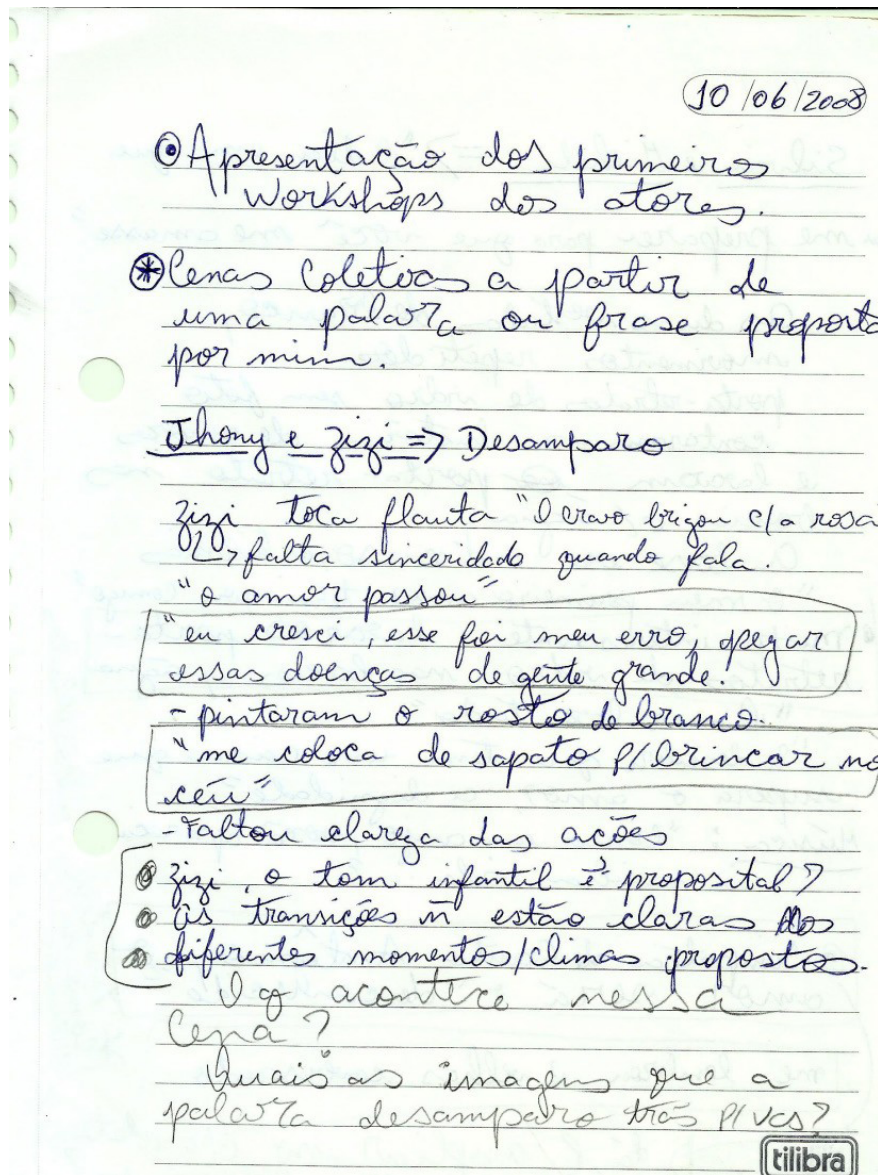 10/06/2008
Apresentação dos primeiros
Workshops dos atores.
Cenas Coletivas a partir de
uma palavra ou frase proposta
por mim.
Jhony e Zizi => Desamparo
Zizi toca flauta "O cravo brigou c/a rosa
↳ falta sinceridade quando fala.
"o amor passou"
"eu cresci, esse foi meu erro, pegar
essas doenças de gente grande.
- pintaram o rosto de branco.
"me coloca de sapato p/ brincar no
céu"
- Faltou clareza das ações
Zizi, o tom infantil é proposital?
as transições ñ estão claras dos
diferentes momentos/climas propostos.
O q acontece nessa
Cena?
Quais as imagens que a
palavra desamparo trás p/ vcs?
tilibra